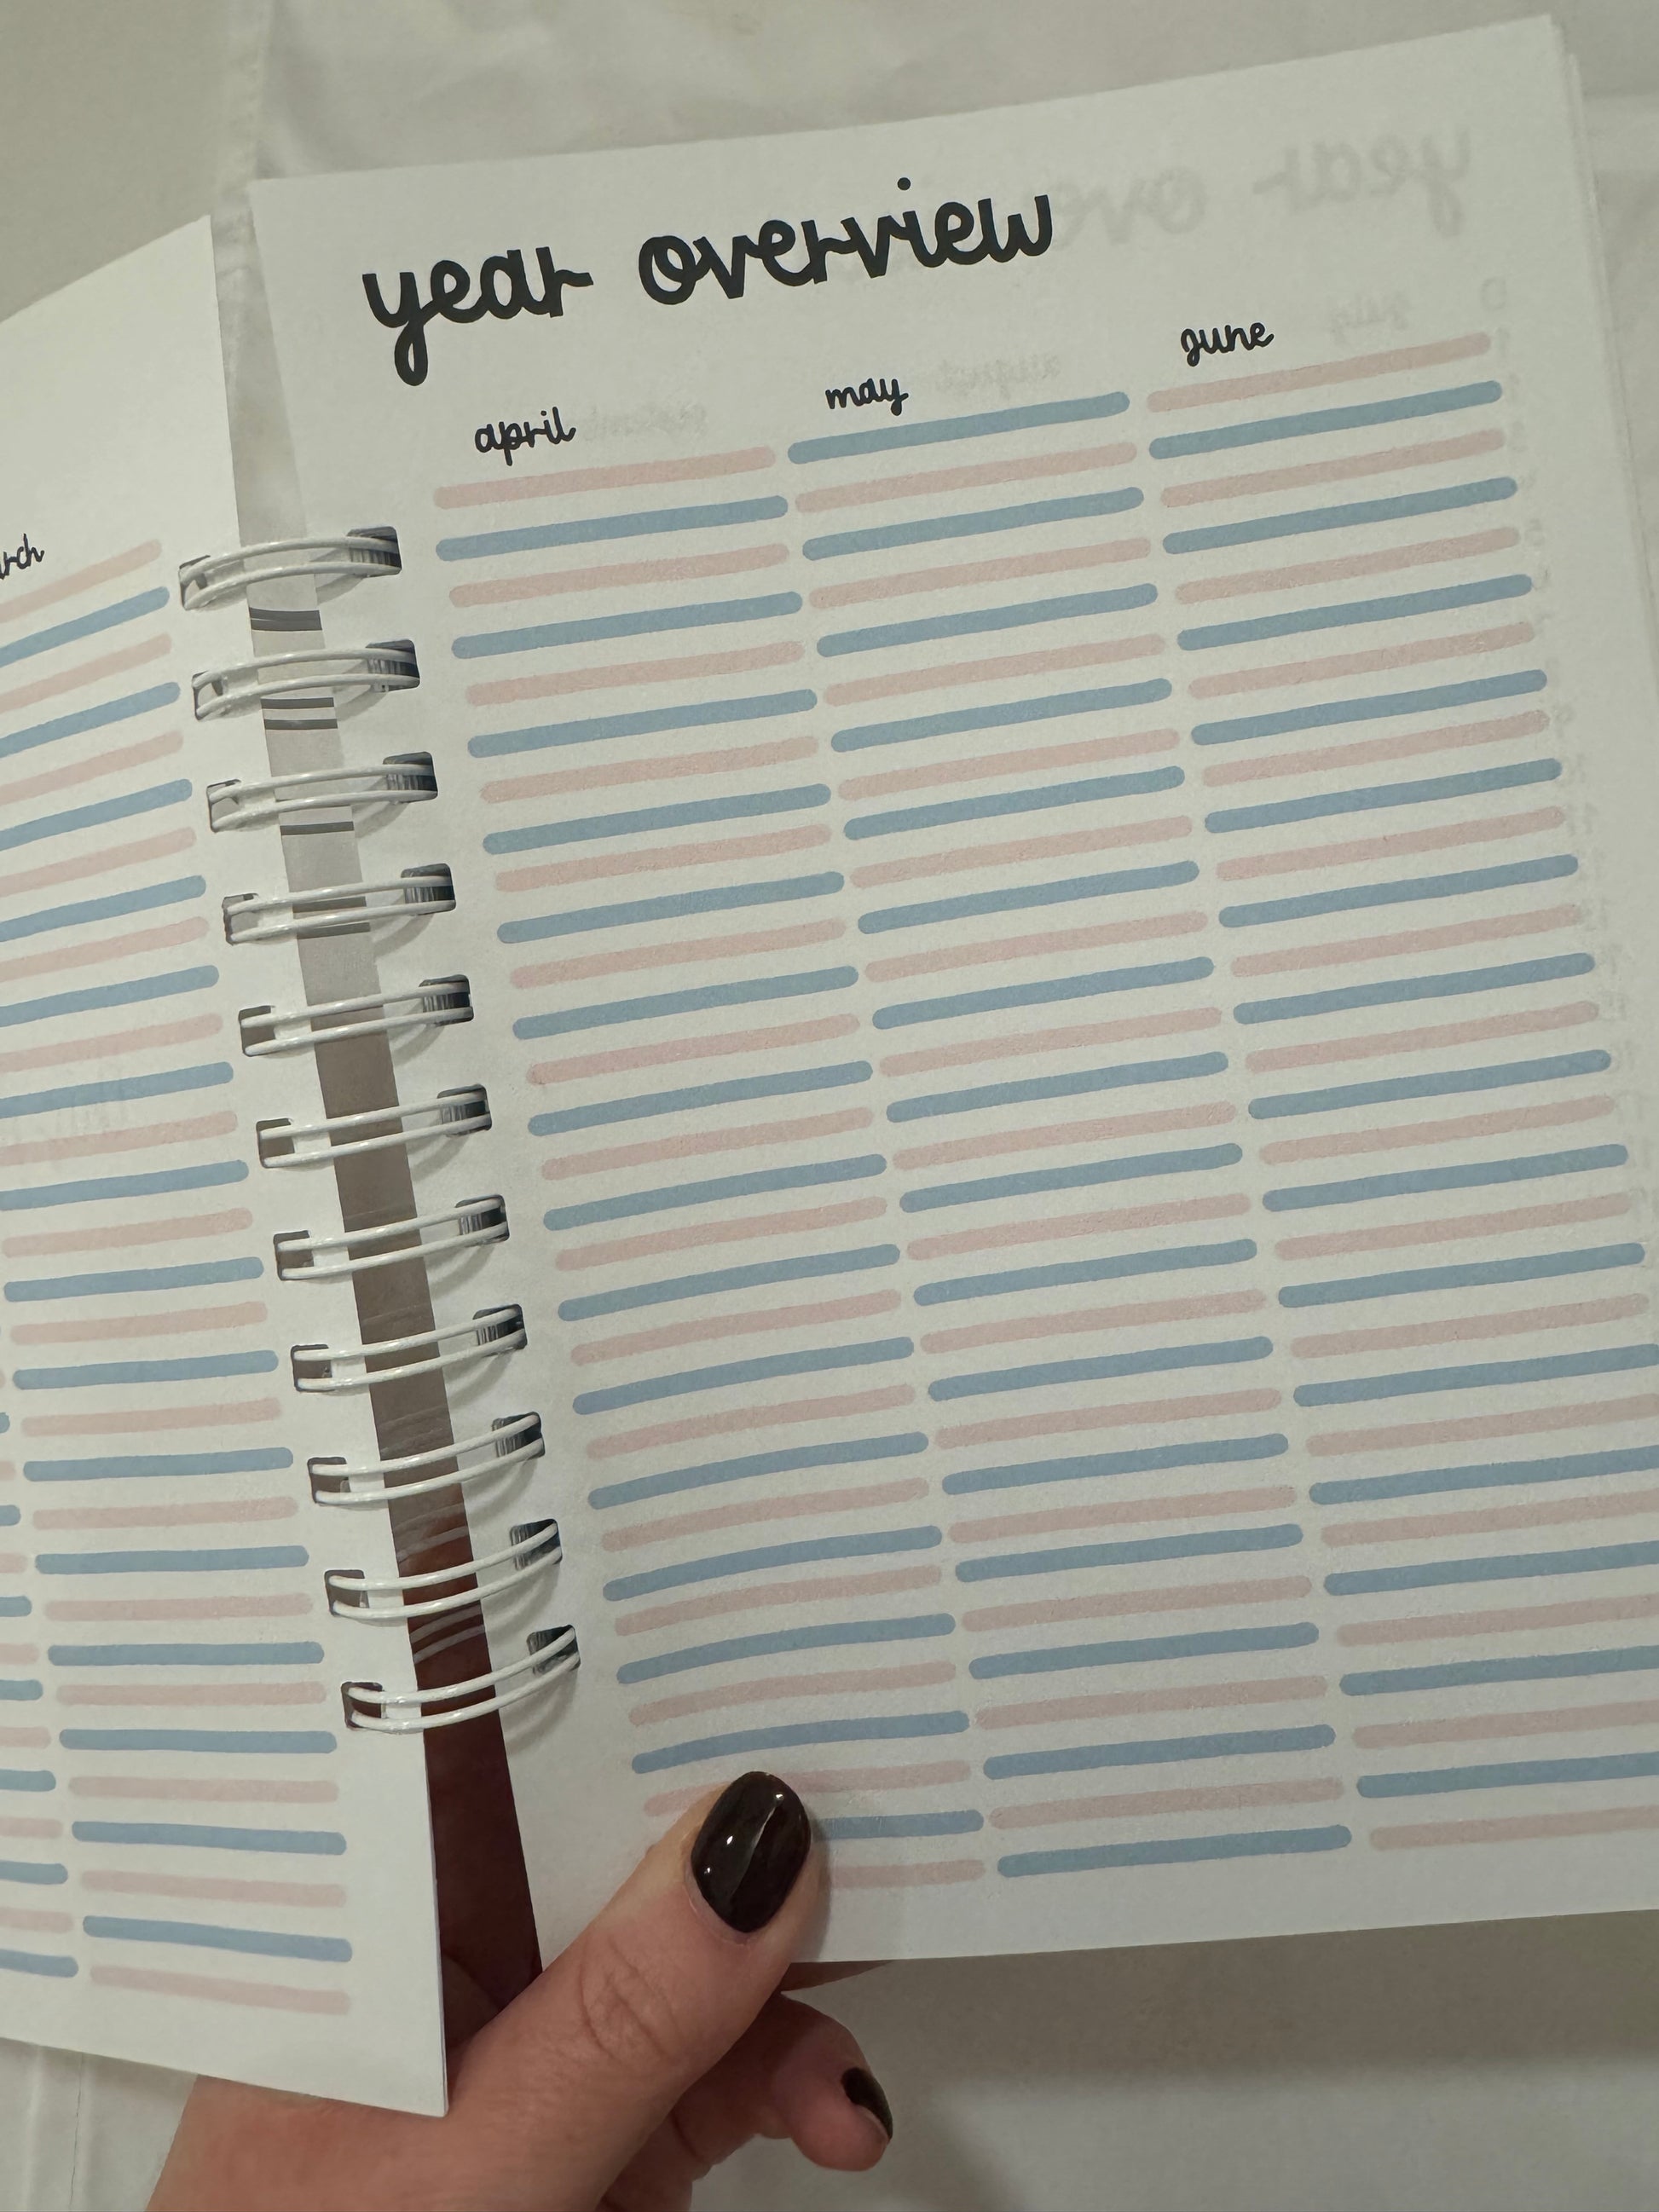 year overview
april
may
june